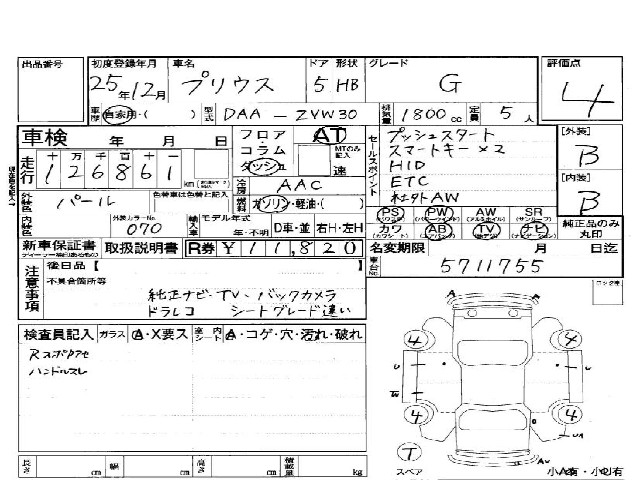 出品番号 初度登録年月 車名 ドア 形状 グレード 評価点
25年12月 プリウス 5 HB G 4
車歴 自家用・( ) 型式 DAA-ZVW30 排気量 1800cc 定員 5人
車検 年 月 日 フロア AT セールスポイント プッシュスタート [外装]
コラム MTのみ記入 スマートキー×2 B
走行 十 万 千 百 十 一 ダッシュ 速 HID
126861 km 冷房 AAC ETC [内装]
外装色 パール 色替車は色替と記入 燃料 ガソリン・軽油・( ) 社外AW B
内装色 外装カラーNo. 070 輸入車 モデル年式 年・不明 D車・並 右H・左H
PS PW AW SR 純正品のみ丸印
カワ AB TV ナビ
新車保証書 取扱説明書 R券 ¥11,820 名変期限 月 日迄
車台No. 5711755
注意事項 後日品【
不具合箇所等
純正ナビ・TV・バックカメラ
ドラレコ シートグレード違い
検査員記入 ガラス A・X要ス 室内シート A・コゲ・穴・汚れ・破れ
Rスポアセ
ハンドルスレ
A
4 4
U U
4 4
UA
T
スペア
AU
小A有・小U有
長さ cm 幅 cm 高さ cm 積載量 kg